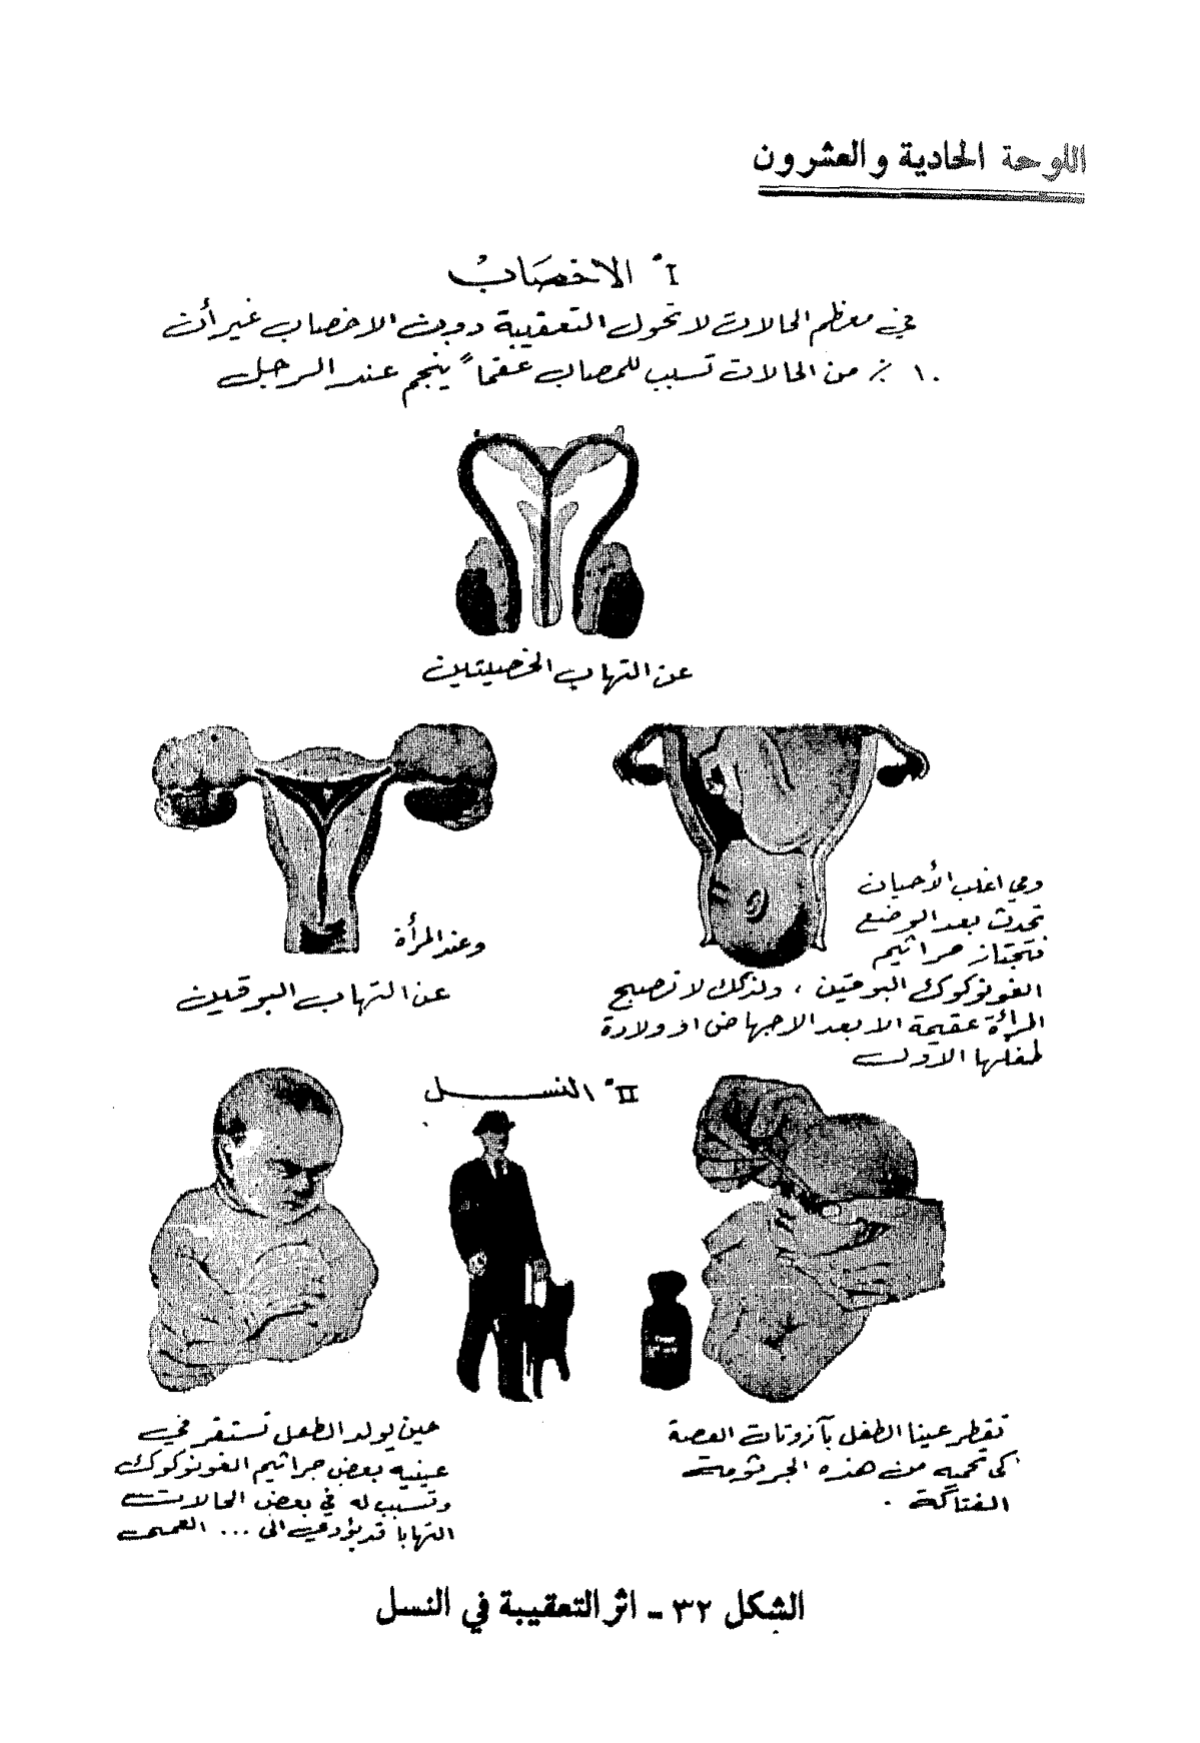 اللوحة الحادية والعشرون
I° الاخصَابْ
في معظم الحالات لا تحول التعقيبة دون الاخصاب غير أن
١٠ ٪ من الحالات تسبب للمصاب عقماً ينجم عند الرجل
عن التهاب الخصيتين
وعند المرأة
عن التهاب البوقين
وفي اغلب الأحيان
تحدث بعد الوضع
فتجتاز جراثيم
الغونوكوك البوقين ، ولذلك لا تصبح
المرأة عقيمة الا بعد الاجهاض او ولادة
طفلها الاول
II° النسل
تقطر عينا الطفل بآزوتات الفضة
كي تحميه من هذه الجرثومة
الفتاكة .
حين يولد الطفل تستقر في
عينيه بعض جراثيم الغونوكوك
وتسبب له في بعض الحالات
التهابا قد يؤدي الى ... العمى
الشكل ٣٢ ـ اثر التعقيبة في النسل